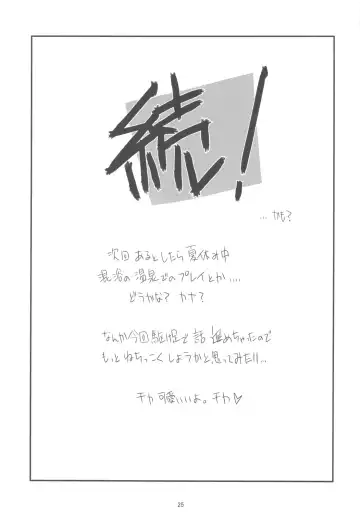 続!
...かも?
次回 あるとしたら 夏休み中
混浴の 温泉でのプレイとか....
どうかな? カナ?
なんか今回駆け足で 話 進めちゃったので
もっとねちっこくしようかと思ってみたり...
チカ 可愛いよ。チカ♡
25